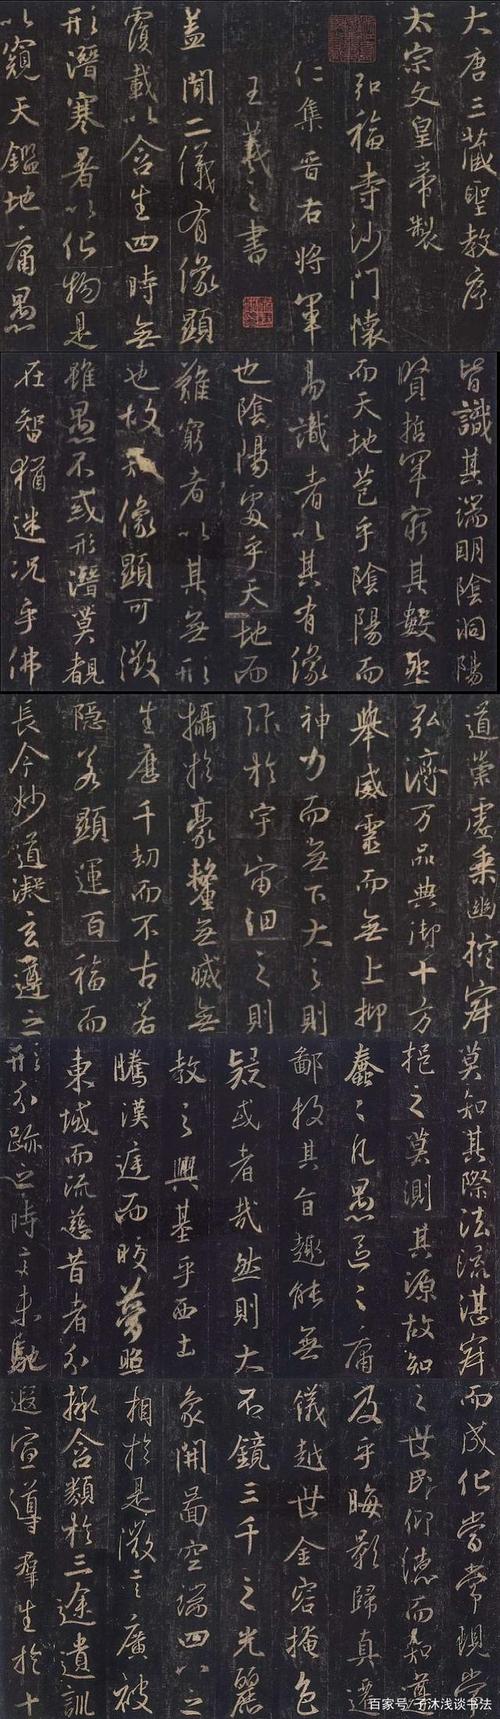 大唐三藏聖教序
太宗文皇帝製
弘福寺沙門懷
仁集晉右將軍
王羲之書
蓋聞二儀有像顯
覆載以含生四時無
形潛寒暑以化物是
以窺天鑑地庸愚
皆識其端明陰洞陽
賢哲罕窮其數然
而天地苞乎陰陽而
易識者以其有像
也陰陽處乎天地而
難窮者以其無形
也故像顯可徵
雖愚不或形潛莫覩
在智猶迷況乎佛
道崇虛乘幽控寂
弘濟万品典御十方
舉威靈而無上抑
神力而無下大之則
彌於宇宙細之則
攝於豪釐無滅無
生歷千劫而不古若
隱若顯運百福而
長今妙道凝玄遵之
莫知其際法流湛寂
挹之莫測其源故知
蠢々凡愚區々庸
鄙投其旨趣能無
疑或者哉然則大
教之興基乎西土
騰漢庭而皎夢照
東域而流慈昔者分
形分跡之時言未馳
而成化當常現常
之世民仰德而知遵
及乎晦影歸真遷
儀越世金容掩色
不鏡三千之光麗
象開圖空端四八之
相於是微言廣被
拯含類於三途遺訓
遐宣導群生於十
百家号/子沐浅谈书法